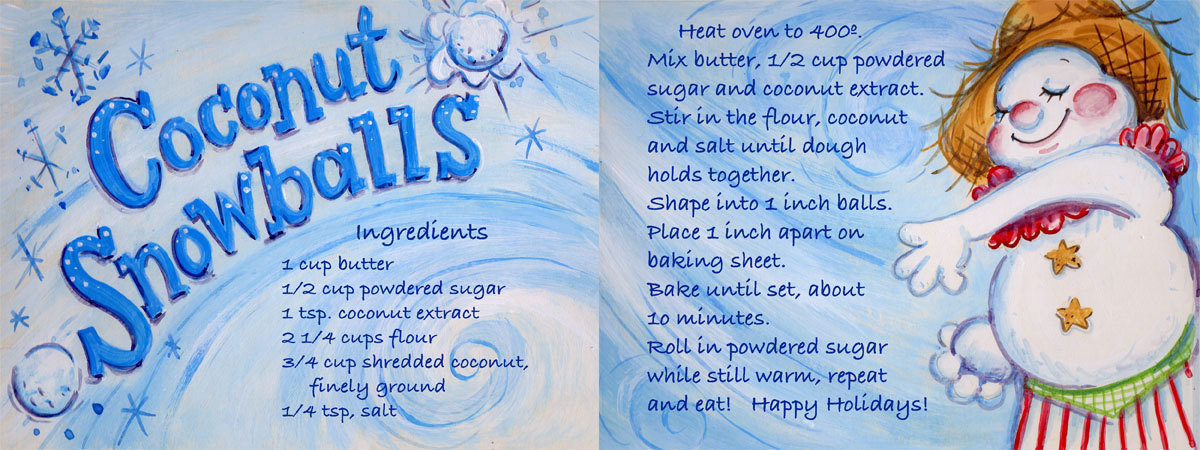 Coconut
Snowballs
Ingredients
1 cup butter
1/2 cup powdered sugar
1 tsp. coconut extract
2 1/4 cups flour
3/4 cup shredded coconut,
finely ground
1/4 tsp, salt
Heat oven to 400º.
Mix butter, 1/2 cup powdered
sugar and coconut extract.
Stir in the flour, coconut
and salt until dough
holds together.
Shape into 1 inch balls.
Place 1 inch apart on
baking sheet.
Bake until set, about
10 minutes.
Roll in powdered sugar
while still warm, repeat
and eat! Happy Holidays!